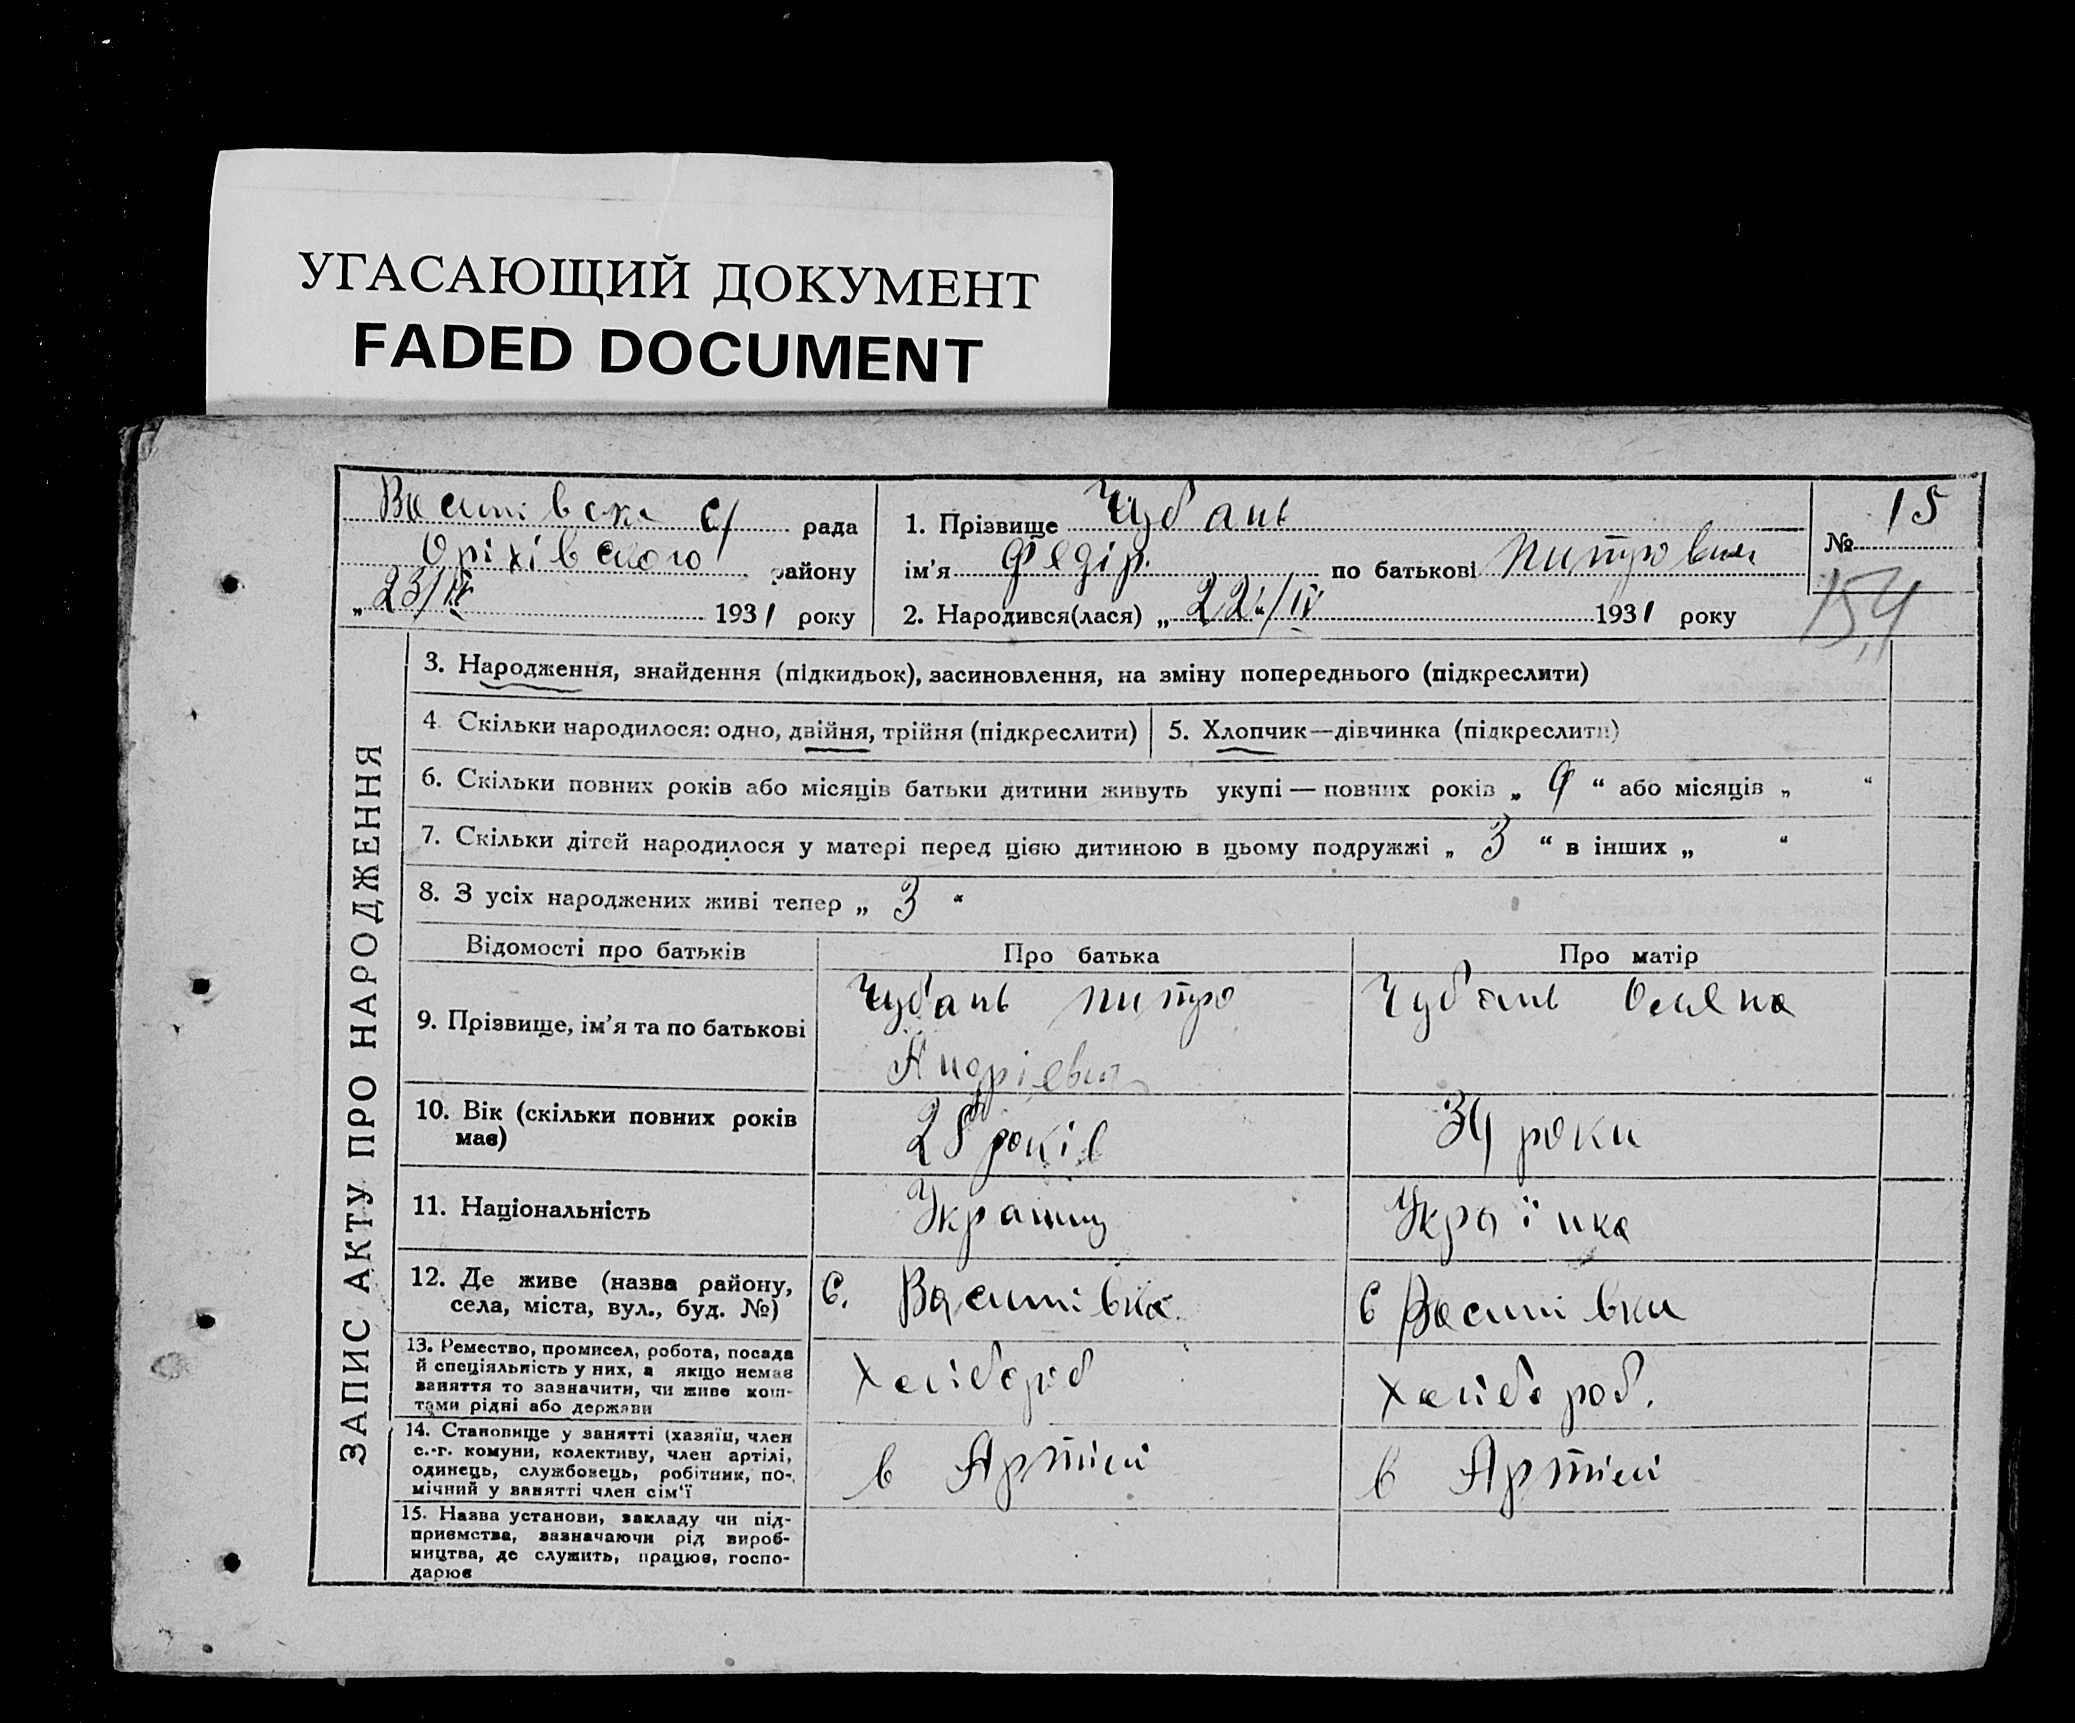 УГАСАЮЩИЙ ДОКУМЕНТ
FADED DOCUMENT
Василівска с/ рада
Оріхівского району
„ 23/IV 1931 року
1. Прізвище Чубань
ім’я Федір. по батькові Питрович
2. Народився(лася) „ 22“/IV 1931 року
№ 15
154
ЗАПИС АКТУ ПРО НАРОДЖЕННЯ
3. Народження, знайдення (підкидьок), засиновлення, на зміну попереднього (підкреслити)
4. Скільки народилося: одно, двійня, трійня (підкреслити)
5. Хлопчик—дівчинка (підкреслити)
6. Скільки повних років або місяців батьки дитини живуть укупі — повних років „ 9 “ або місяців „ “
7. Скільки дітей народилося у матері перед цією дитиною в цьому подружжі „ 3 “ в інших „ “
8. З усіх народжених живі тепер „ 3 “
Відомості про батьків Про батька Про матір
9. Прізвище, ім’я та по батькові
Чубань Питро
Андрієвич
Чубань Олена
10. Вік (скільки повних років
має)
28 років
34 роки
11. Національність
Украинц
Українка
12. Де живе (назва району,
села, міста, вул., буд. №)
С. Василівка
С Василівки
13. Ремество, промисел, робота, посада
й спеціяльність у них, а якщо немає
заняття то зазначити, чи живе кош-
тами рідні або держави
Хлібороб
Хлібороб.
14. Становище у занятті (хазяїн, член
с.-г. комуни, колективу, член артілі,
одинець, службовець, робітник, по-
мічний у занятті член сім’ї
в Артілі
в Артілі
15. Назва установи, закладу чи під-
приємства, зазначаючи рід вироб-
ництва, де служить, працює, госпо-
дарює